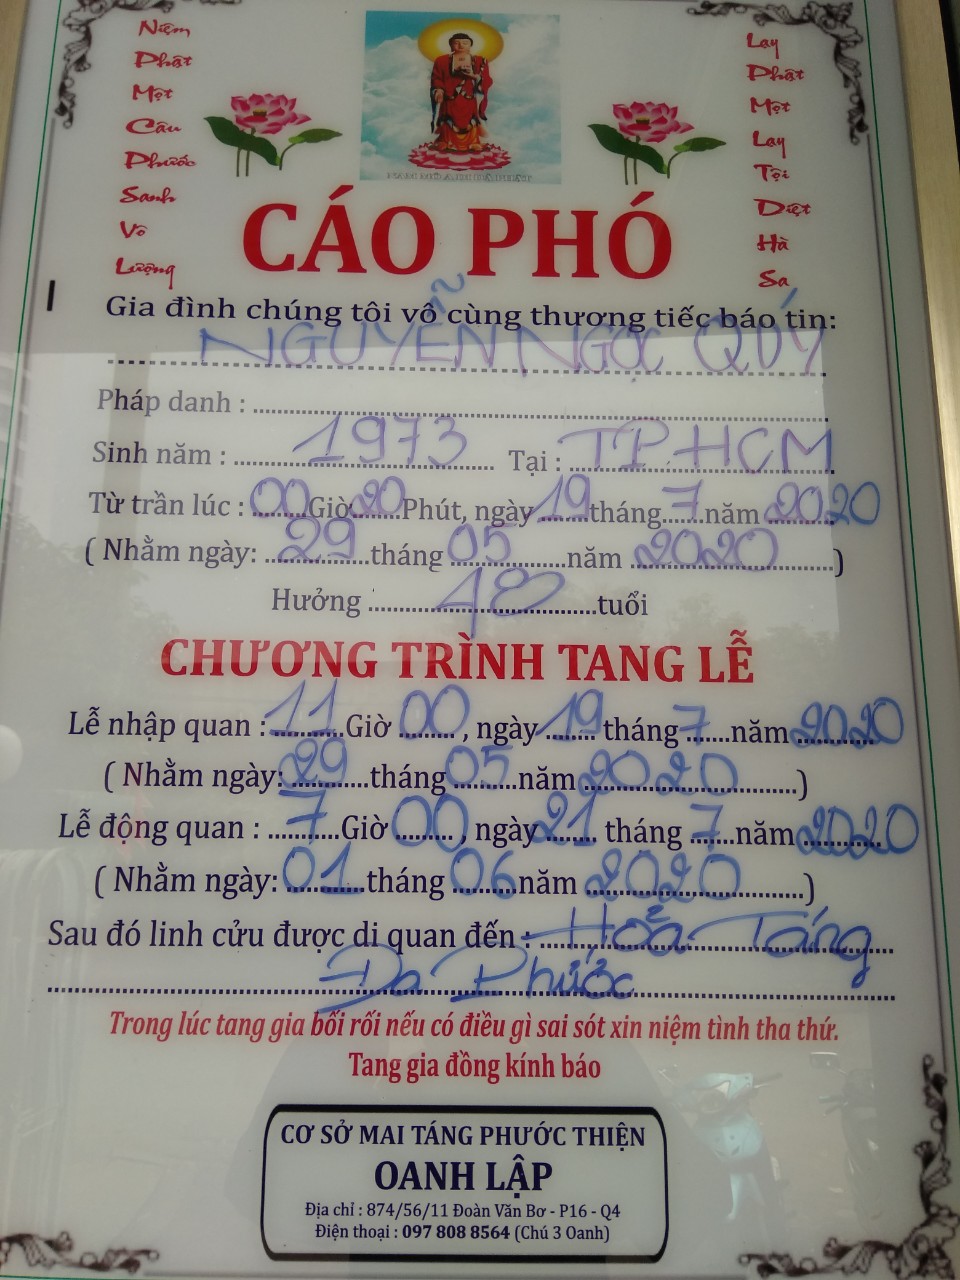 Niệm
Phật
Một
Câu
Phước
Sanh
Vô
Lượng
Lạy
Phật
Một
Lạy
Tội
Diệt
Hà
Sa
NAM MÔ A DI ĐÀ PHẬT
CÁO PHÓ
Gia đình chúng tôi vô cùng thương tiếc báo tin:
NGUYỄN NGỌC QUÝ
Pháp danh :
Sinh năm : 1973 Tại : TP HCM
Từ trần lúc : 00 Giờ 20 Phút, ngày 19 tháng 7 năm 2020
( Nhằm ngày: 29 tháng 05 năm 2020 )
Hưởng 48 tuổi
CHƯƠNG TRÌNH TANG LỄ
Lễ nhập quan : 11 Giờ 00 , ngày 19 tháng 7 năm 2020
( Nhằm ngày: 29 tháng 05 năm 2020 )
Lễ động quan : 7 Giờ 00 , ngày 21 tháng 7 năm 2020
( Nhằm ngày: 01 tháng 06 năm 2020 )
Sau đó linh cửu được di quan đến : Hỏa Táng
Đa Phước
Trong lúc tang gia bối rối nếu có điều gì sai sót xin niệm tình tha thứ.
Tang gia đồng kính báo
CƠ SỞ MAI TÁNG PHƯỚC THIỆN
OANH LẬP
Địa chỉ : 874/56/11 Đoàn Văn Bơ - P16 - Q4
Điện thoại : 097 808 8564 (Chú 3 Oanh)